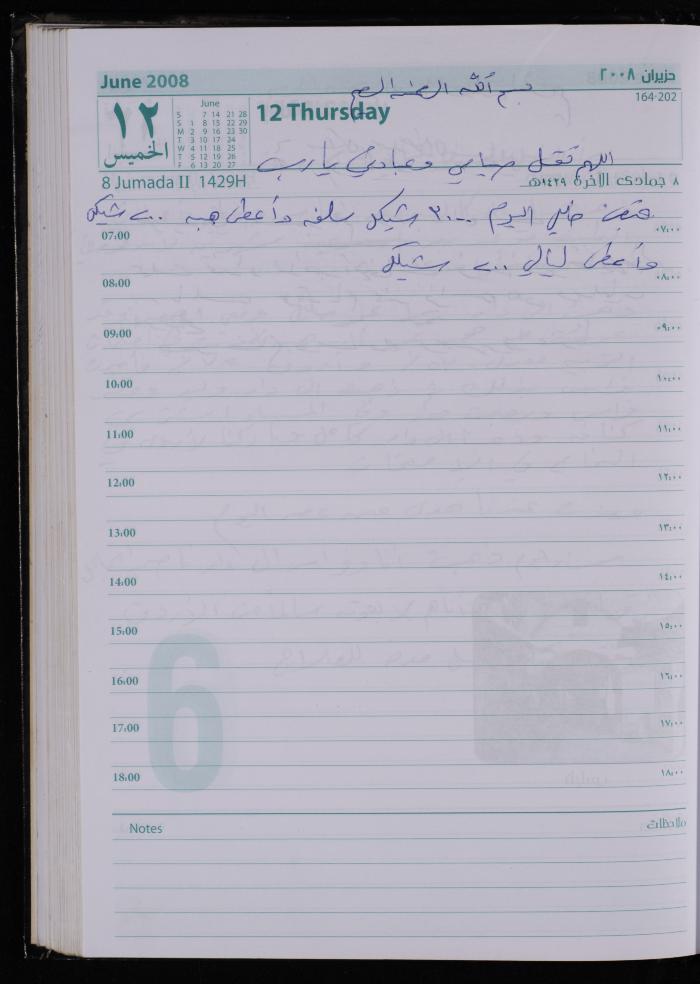 June 2008
حزيران ٢٠٠٨
بسم الله الرحمن الرحيم
164-202
١٢
الخميس
June
S 7 14 21 28
S 1 8 15 22 29
M 2 9 16 23 30
T 3 10 17 24
W 4 11 18 25
T 5 12 19 26
F 6 13 20 27
12 Thursday
اللهم تقبل صيامي وعبادتي يا رب
8 Jumada II 1429H
٨ جمادى الآخرة ١٤٢٩هـ
اليوم ٣٠٠٠ شيكل سلفه وأعطى هبه ٢٠٠ شيكل
07:00 ٠٧:٠٠
وأعطى ليالي ٢٠٠ شيكل
08:00 ٠٨:٠٠
09:00 ٠٩:٠٠
10:00 ١٠:٠٠
11:00 ١١:٠٠
12:00 ١٢:٠٠
13:00 ١٣:٠٠
14:00 ١٤:٠٠
15:00 ١٥:٠٠
16:00 ١٦:٠٠
17:00 ١٧:٠٠
18:00 ١٨:٠٠
6
Notes ملاحظات